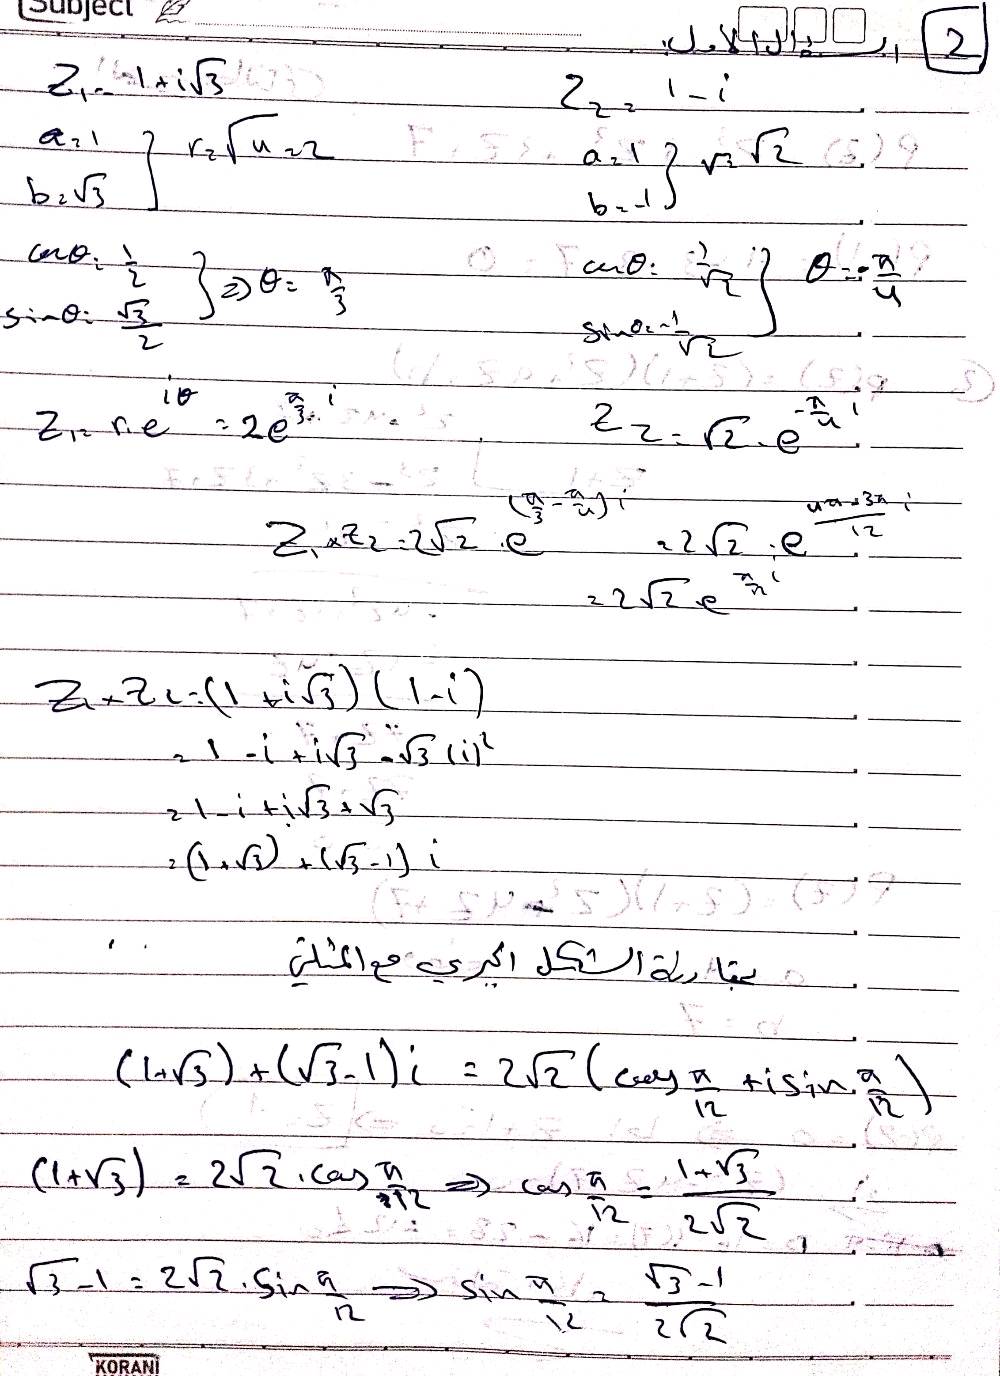 Subject
2
Z₁ = 1 + i√3
Z₂ = 1 - i
a = 1
b = √3 } r = √4 = 2
a = 1
b = -1 } r = √2
cosθ = 1/2
sinθ = √3/2 } ⇒ θ = π/3
cosθ = 1/√2
sinθ = -1/√2 } θ = -π/4
Z₁ = r.e^{iθ} = 2e^{π/3 i}
Z₂ = √2 . e^{-π/4 i}
Z₁ × Z₂ = 2√2 . e^{(π/3 - π/4) i} = 2√2 . e^{(4π - 3π)/12 i}
= 2√2 e^{π/12 i}
Z₁ × Z₂ = (1 + i√3)(1 - i)
= 1 - i + i√3 - √3 (i)²
= 1 - i + i√3 + √3
= (1 + √3) + (√3 - 1) i
بمقارنة الشكل الجبري مع المثلثي
(1+√3) + (√3 - 1) i = 2√2 (cos π/12 + i sin π/12)
(1+√3) = 2√2 . cos π/12 ⇒ cos π/12 = (1+√3)/(2√2)
√3 - 1 = 2√2 . sin π/12 ⇒ sin π/12 = (√3 - 1)/(2√2)
KORANI